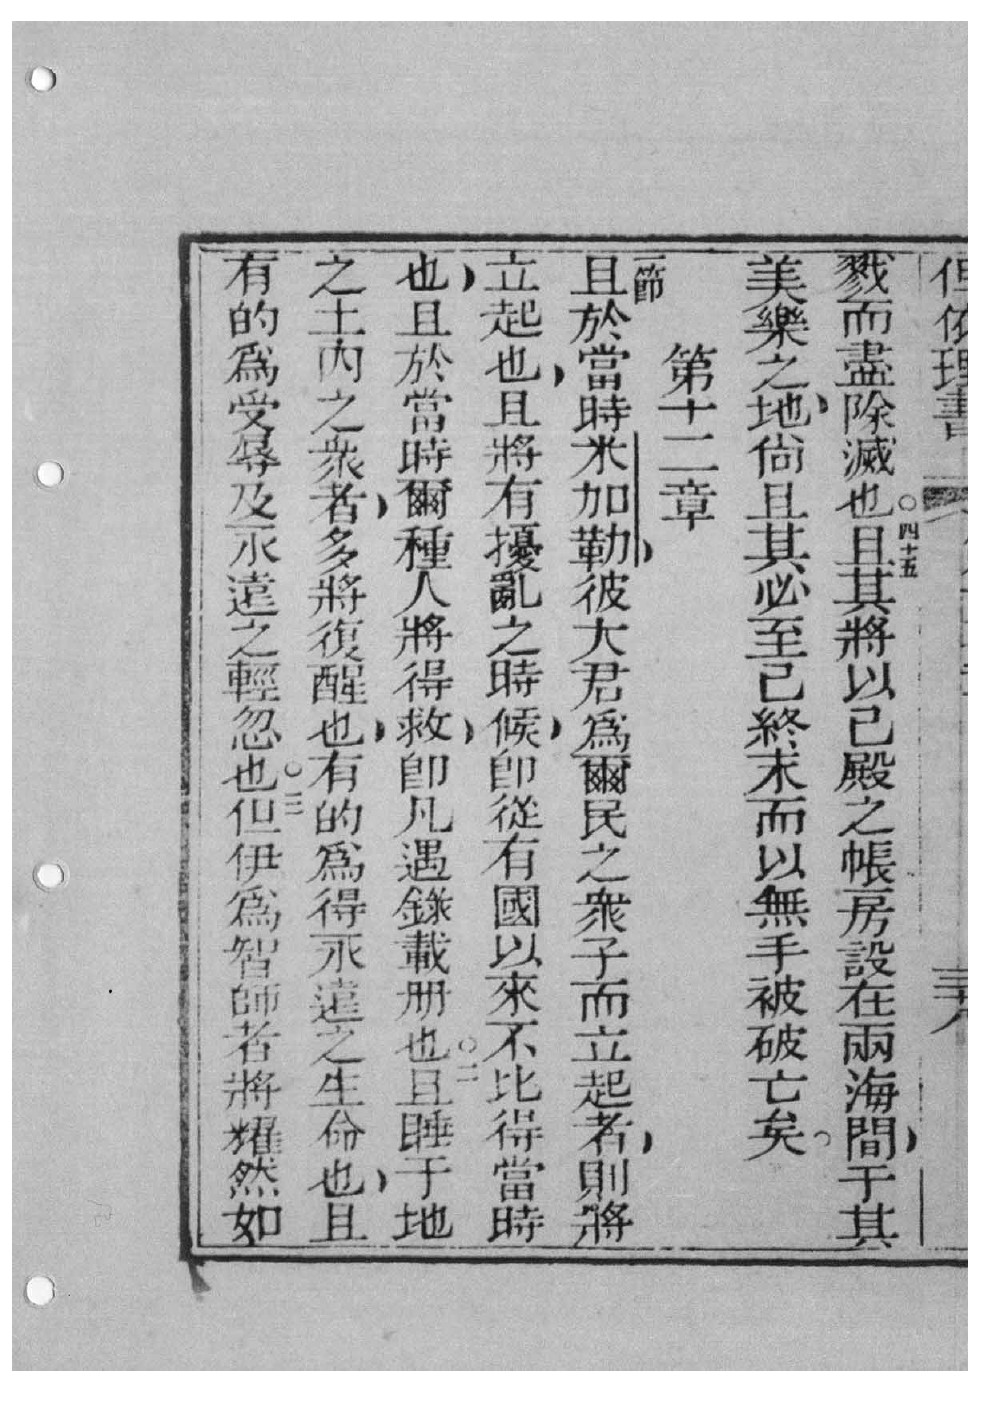 但依理書
戮而盡除滅也○四十五且其將以己殿之帳房設在兩海間于其
美樂之地尙且其必至己終末而以無手被破亡矣。
第十二章
一節且於當時米加勒彼大君爲爾民之衆子而立起者則將
立起也且將有擾亂之時候卽從有國以來不比得當時
也且於當時爾種人將得救卽凡遇錄載册也○二且睡于地
之土內之衆者多將復醒也有的爲得永遠之生命也且
有的爲受辱及永遠之輕忽也○三但伊爲智師者將耀然如